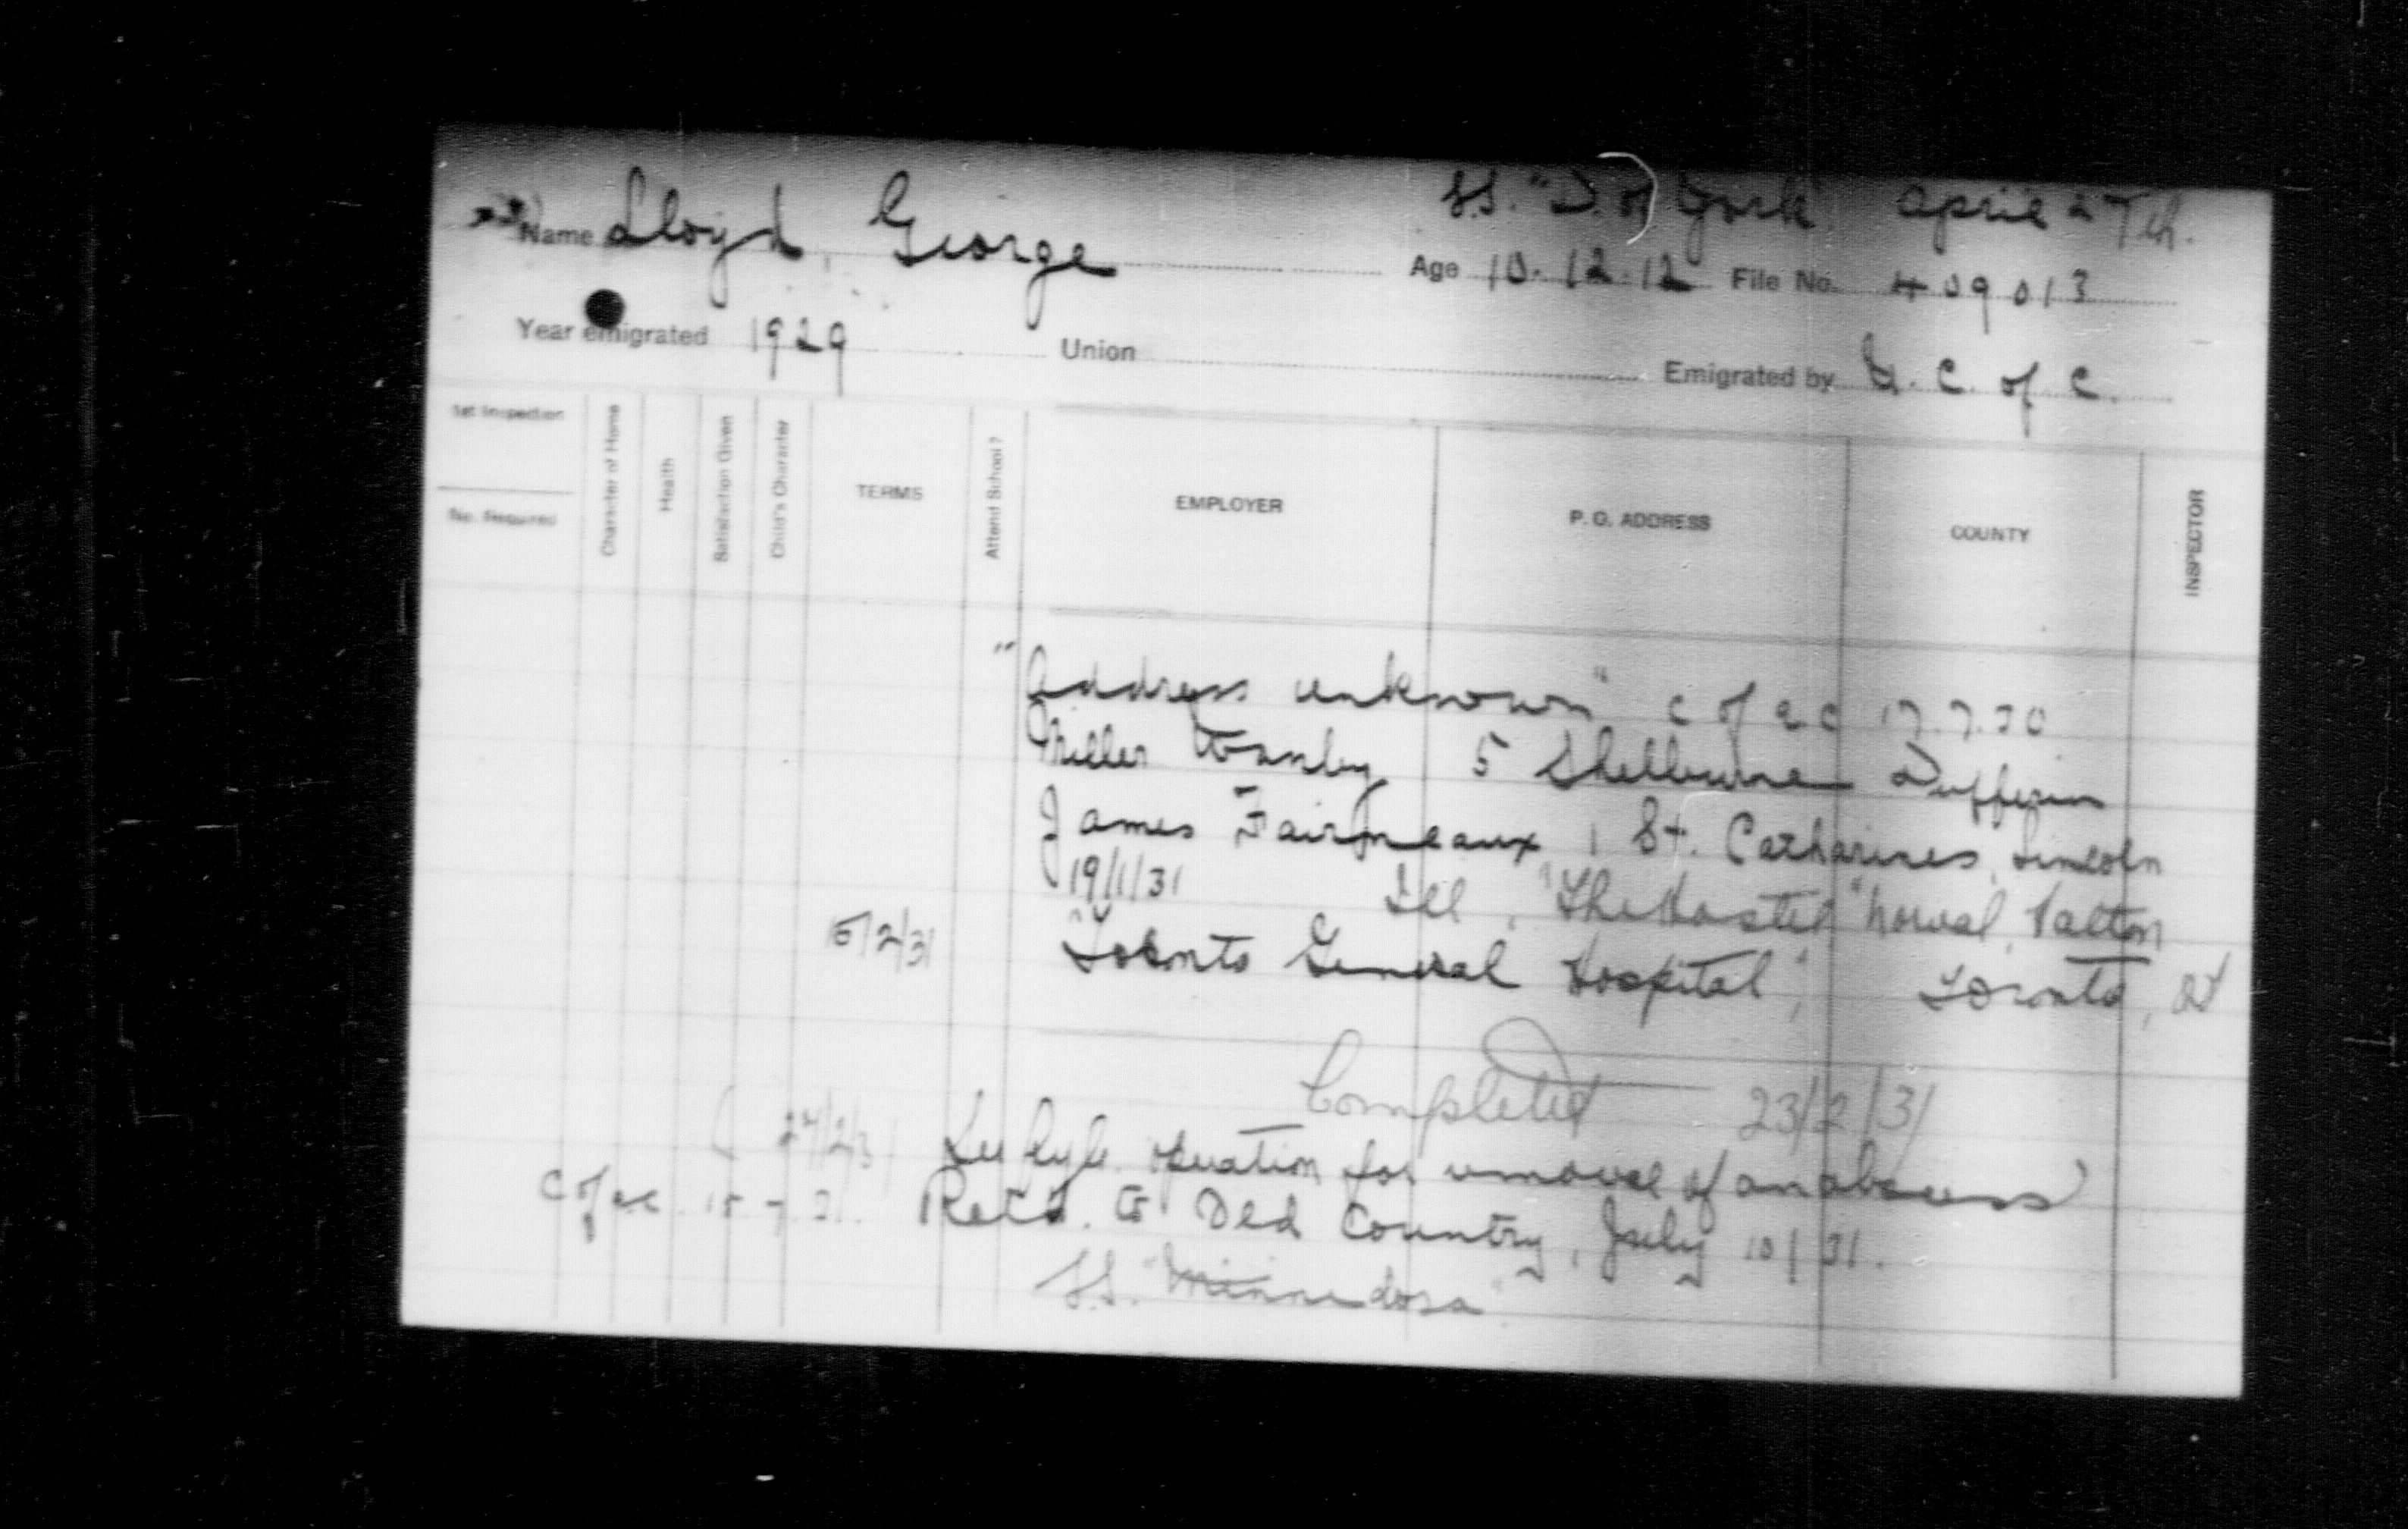 S.S. "D. of York" April 27th.
Name Lloyd, George Age 10.12.12 File No. 409013
Year emigrated 1929 Union Emigrated by U. C. of C.
1st Inspection
No. Required
Character of Home
Health
Satisfaction Given
Child's Character
TERMS
Attend School?
EMPLOYER
P. O. ADDRESS
COUNTY
INSPECTOR
"Address unknown" C of ac 17.7.30
Miller 5 Shelburne Dufferin
James Fairmeaux 1 St. Catharines, Lincoln
19/1/31 Ill, "The Hostel" Norval, Halton
15/2/31 "Toronto General Hospital", Toronto,
Completed 23/2/31
( 24/2/31 operation for removal of an abscess)
C of ac Ret'd. to Old Country, July 10/31.
S.S. "Minnedosa"